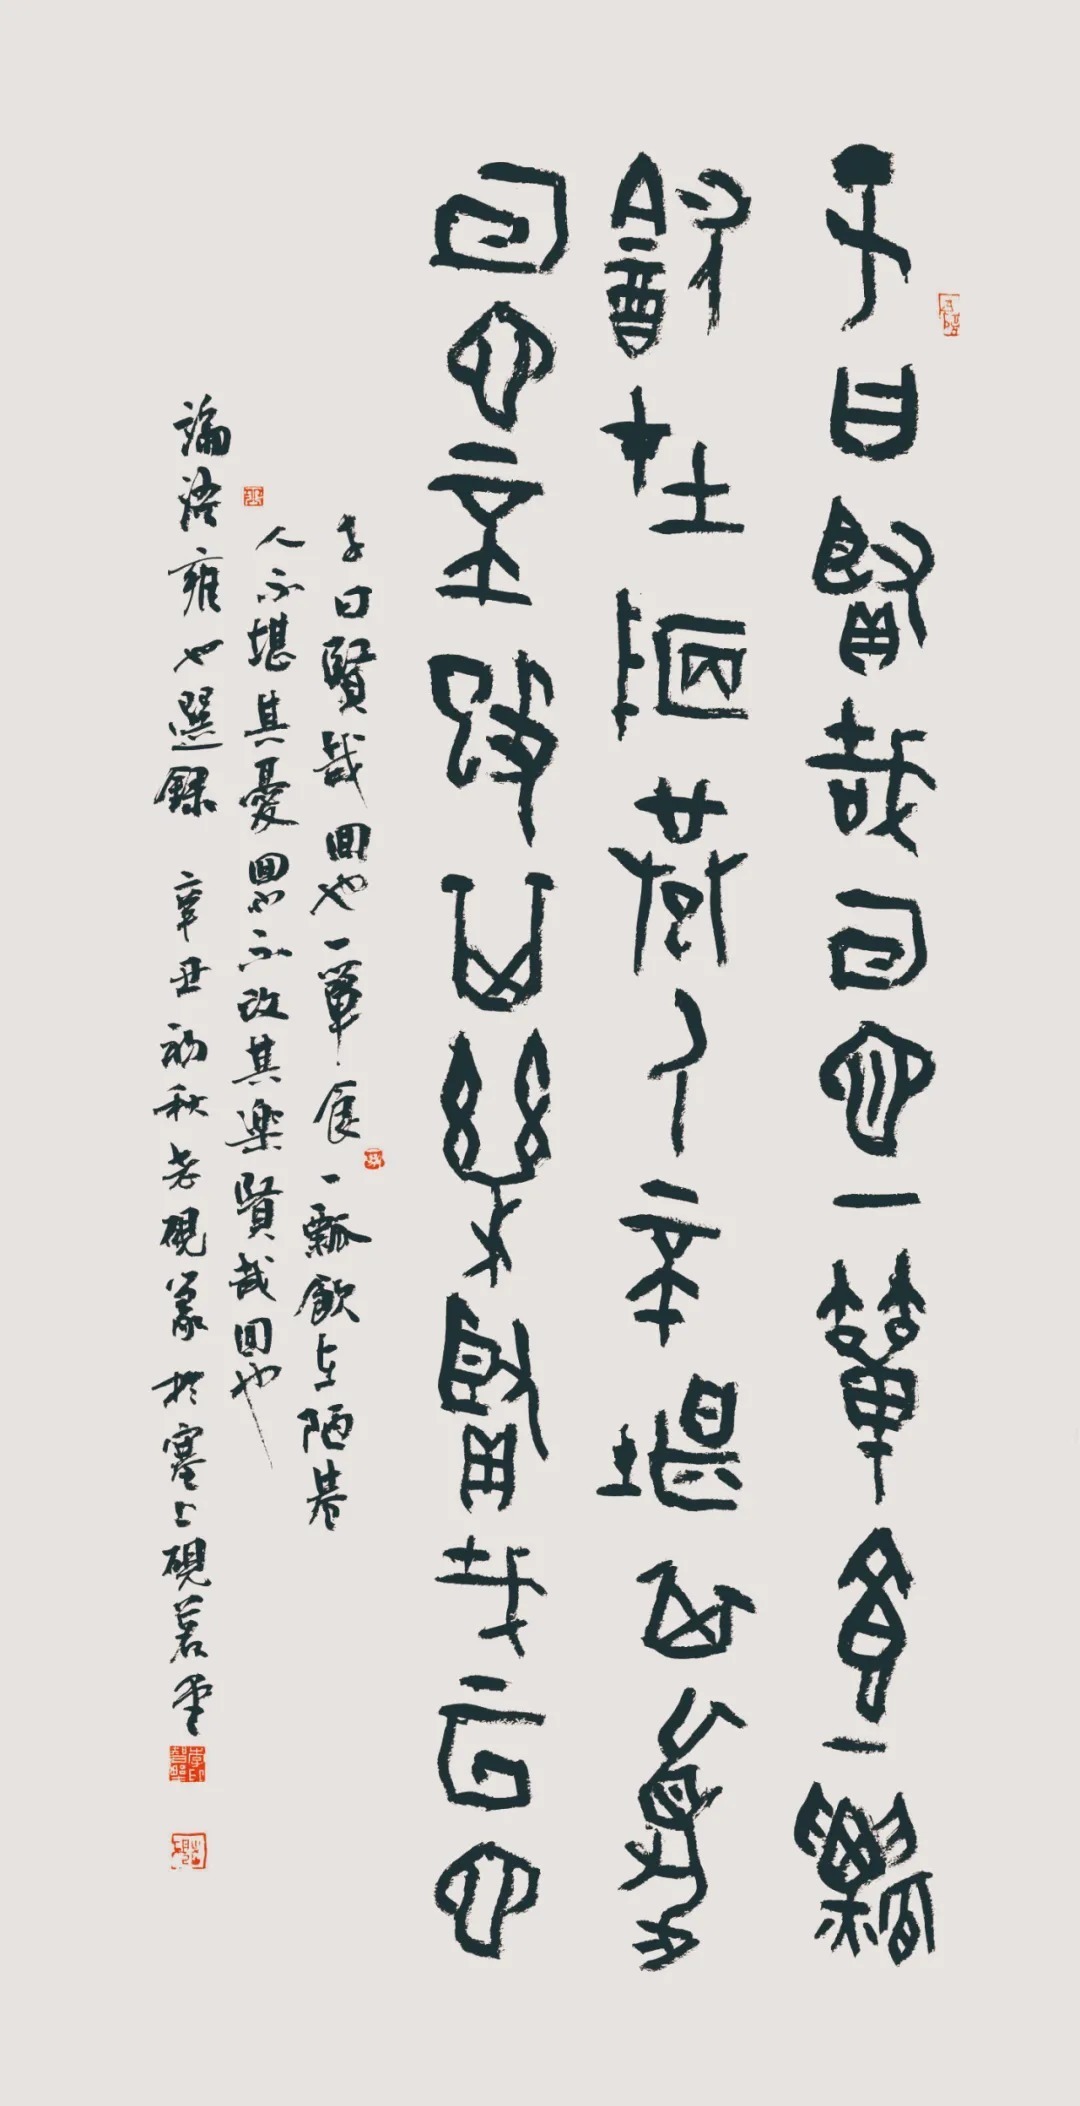 子曰賢哉回也一簞食一瓢
飲在陋巷人不堪其憂
回也不改其樂賢哉回也
子曰賢哉回也一簞食一瓢飲在陋巷
人不堪其憂回也不改其樂賢哉回也
論語雍也選錄 辛丑初秋老硯篆於塞上硯茗堂